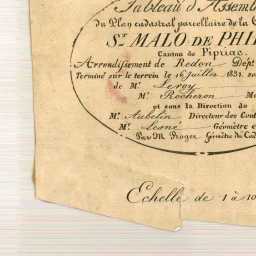 Tableau d'Assemb
du Plan cadastral parcellaire de la C
St. MALO DE PHI
Canton de Pipriac.
Arrondissement de Redon Dépt
Terminé sur le terrein le 16 juillet 1831. so
de Mr. Leroy
Mr. Rocheron M
et sous la Direction du
Mr. Aubelin Directeur des Cont
Mr. Lesné Géomètre e
Par M. Géomètre du Cad
Echelle de 1 à 10